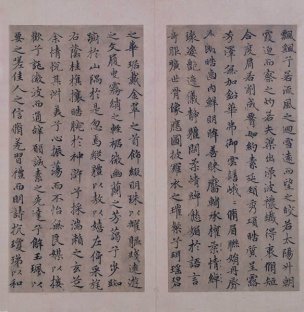 飄飖兮若流風之迴雪遠而望之皎若太陽升朝
霞迫而察之灼若芙蕖出淥波穠纖得衷脩短
合度肩若削成腰如約素延頸秀項皓質呈露
芳澤無加鉛華弗御雲髻峨峨脩眉聯娟丹脣
外朗皓齒內鮮明眸善睞靨輔承權
瓌姿豔逸儀靜體閑柔情綽態媚於語言
奇服曠世骨像應圖披羅衣之璀粲兮珥瑤碧
之華琚戴金翠之首飾綴明珠以耀軀踐遠遊
之文履曳霧綃之輕裾微幽蘭之芳藹兮步踟
躕於山隅於是忽焉縱體以遨以嬉左倚采旄
右蔭桂旗攘皓腕於神滸兮採湍瀨之玄芝
余情悅其淑美兮心振蕩而不怡無良媒以接
歡兮託微波而通辭願誠素之先達兮解玉珮以
要之嗟佳人之信脩羌習禮而明詩抗瓊珶以和